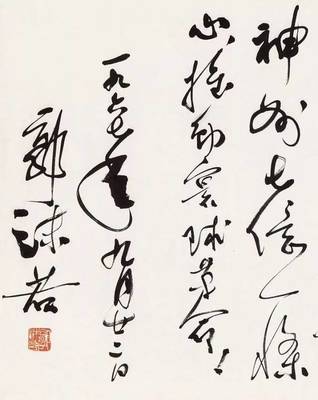 神州七億一條
心推動寰球革命！
一九六七年九月廿二日
郭沫若